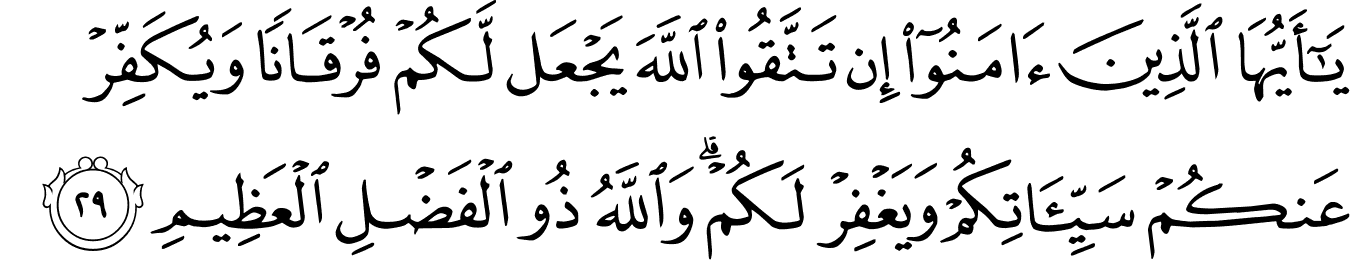 يَـٰٓأَيُّهَا ٱلَّذِينَ ءَامَنُوٓا۟ إِن تَتَّقُوا۟ ٱللَّهَ يَجْعَل لَّكُمْ فُرْقَانًا وَيُكَفِّرْ
عَنكُمْ سَيِّـَٔاتِكُمْ وَيَغْفِرْ لَكُمْ ۗ وَٱللَّهُ ذُو ٱلْفَضْلِ ٱلْعَظِيمِ ٢٩